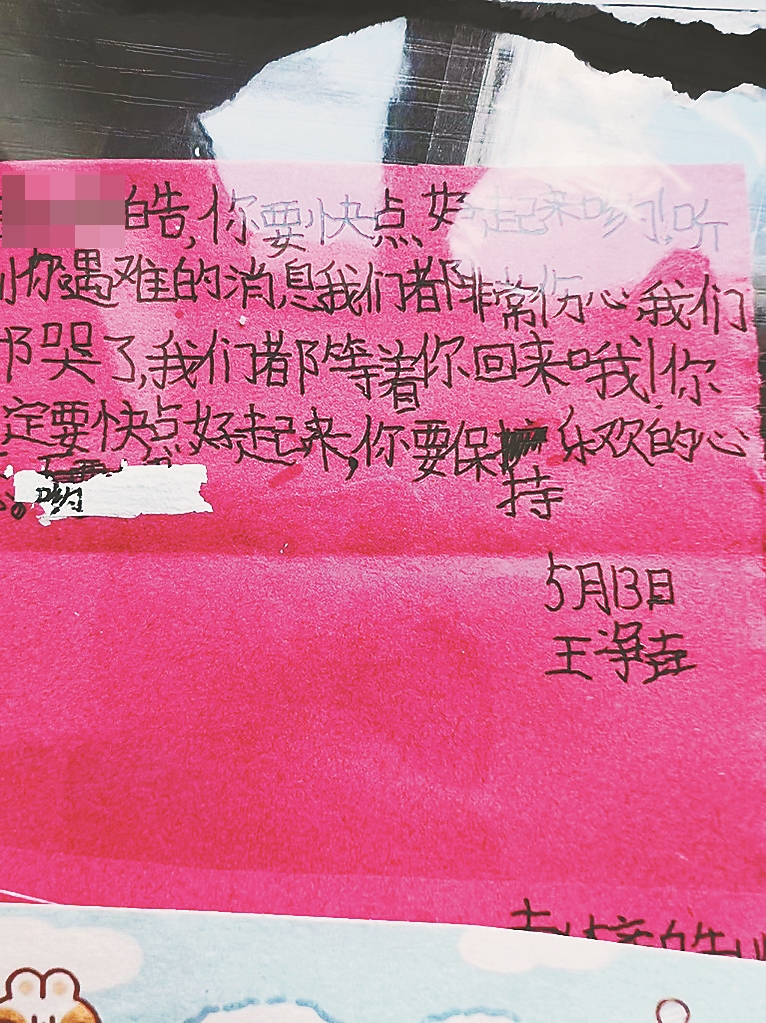 皓,你要快点好起来哟!听
到你遇难的消息我们都非常伤心,我们
都哭了,我们都等着你回来哦!你
定要快点好起来,你要保持乐欢的心
心。哟
5月13日
王净壹